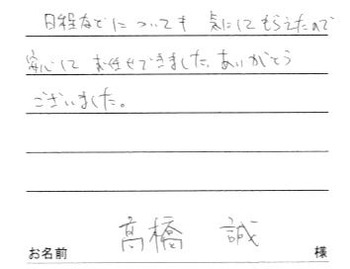 日程などについても 気にしてもらえたので
安心して お任せできました。ありがとう
ございました。
お名前 高橋 誠 様